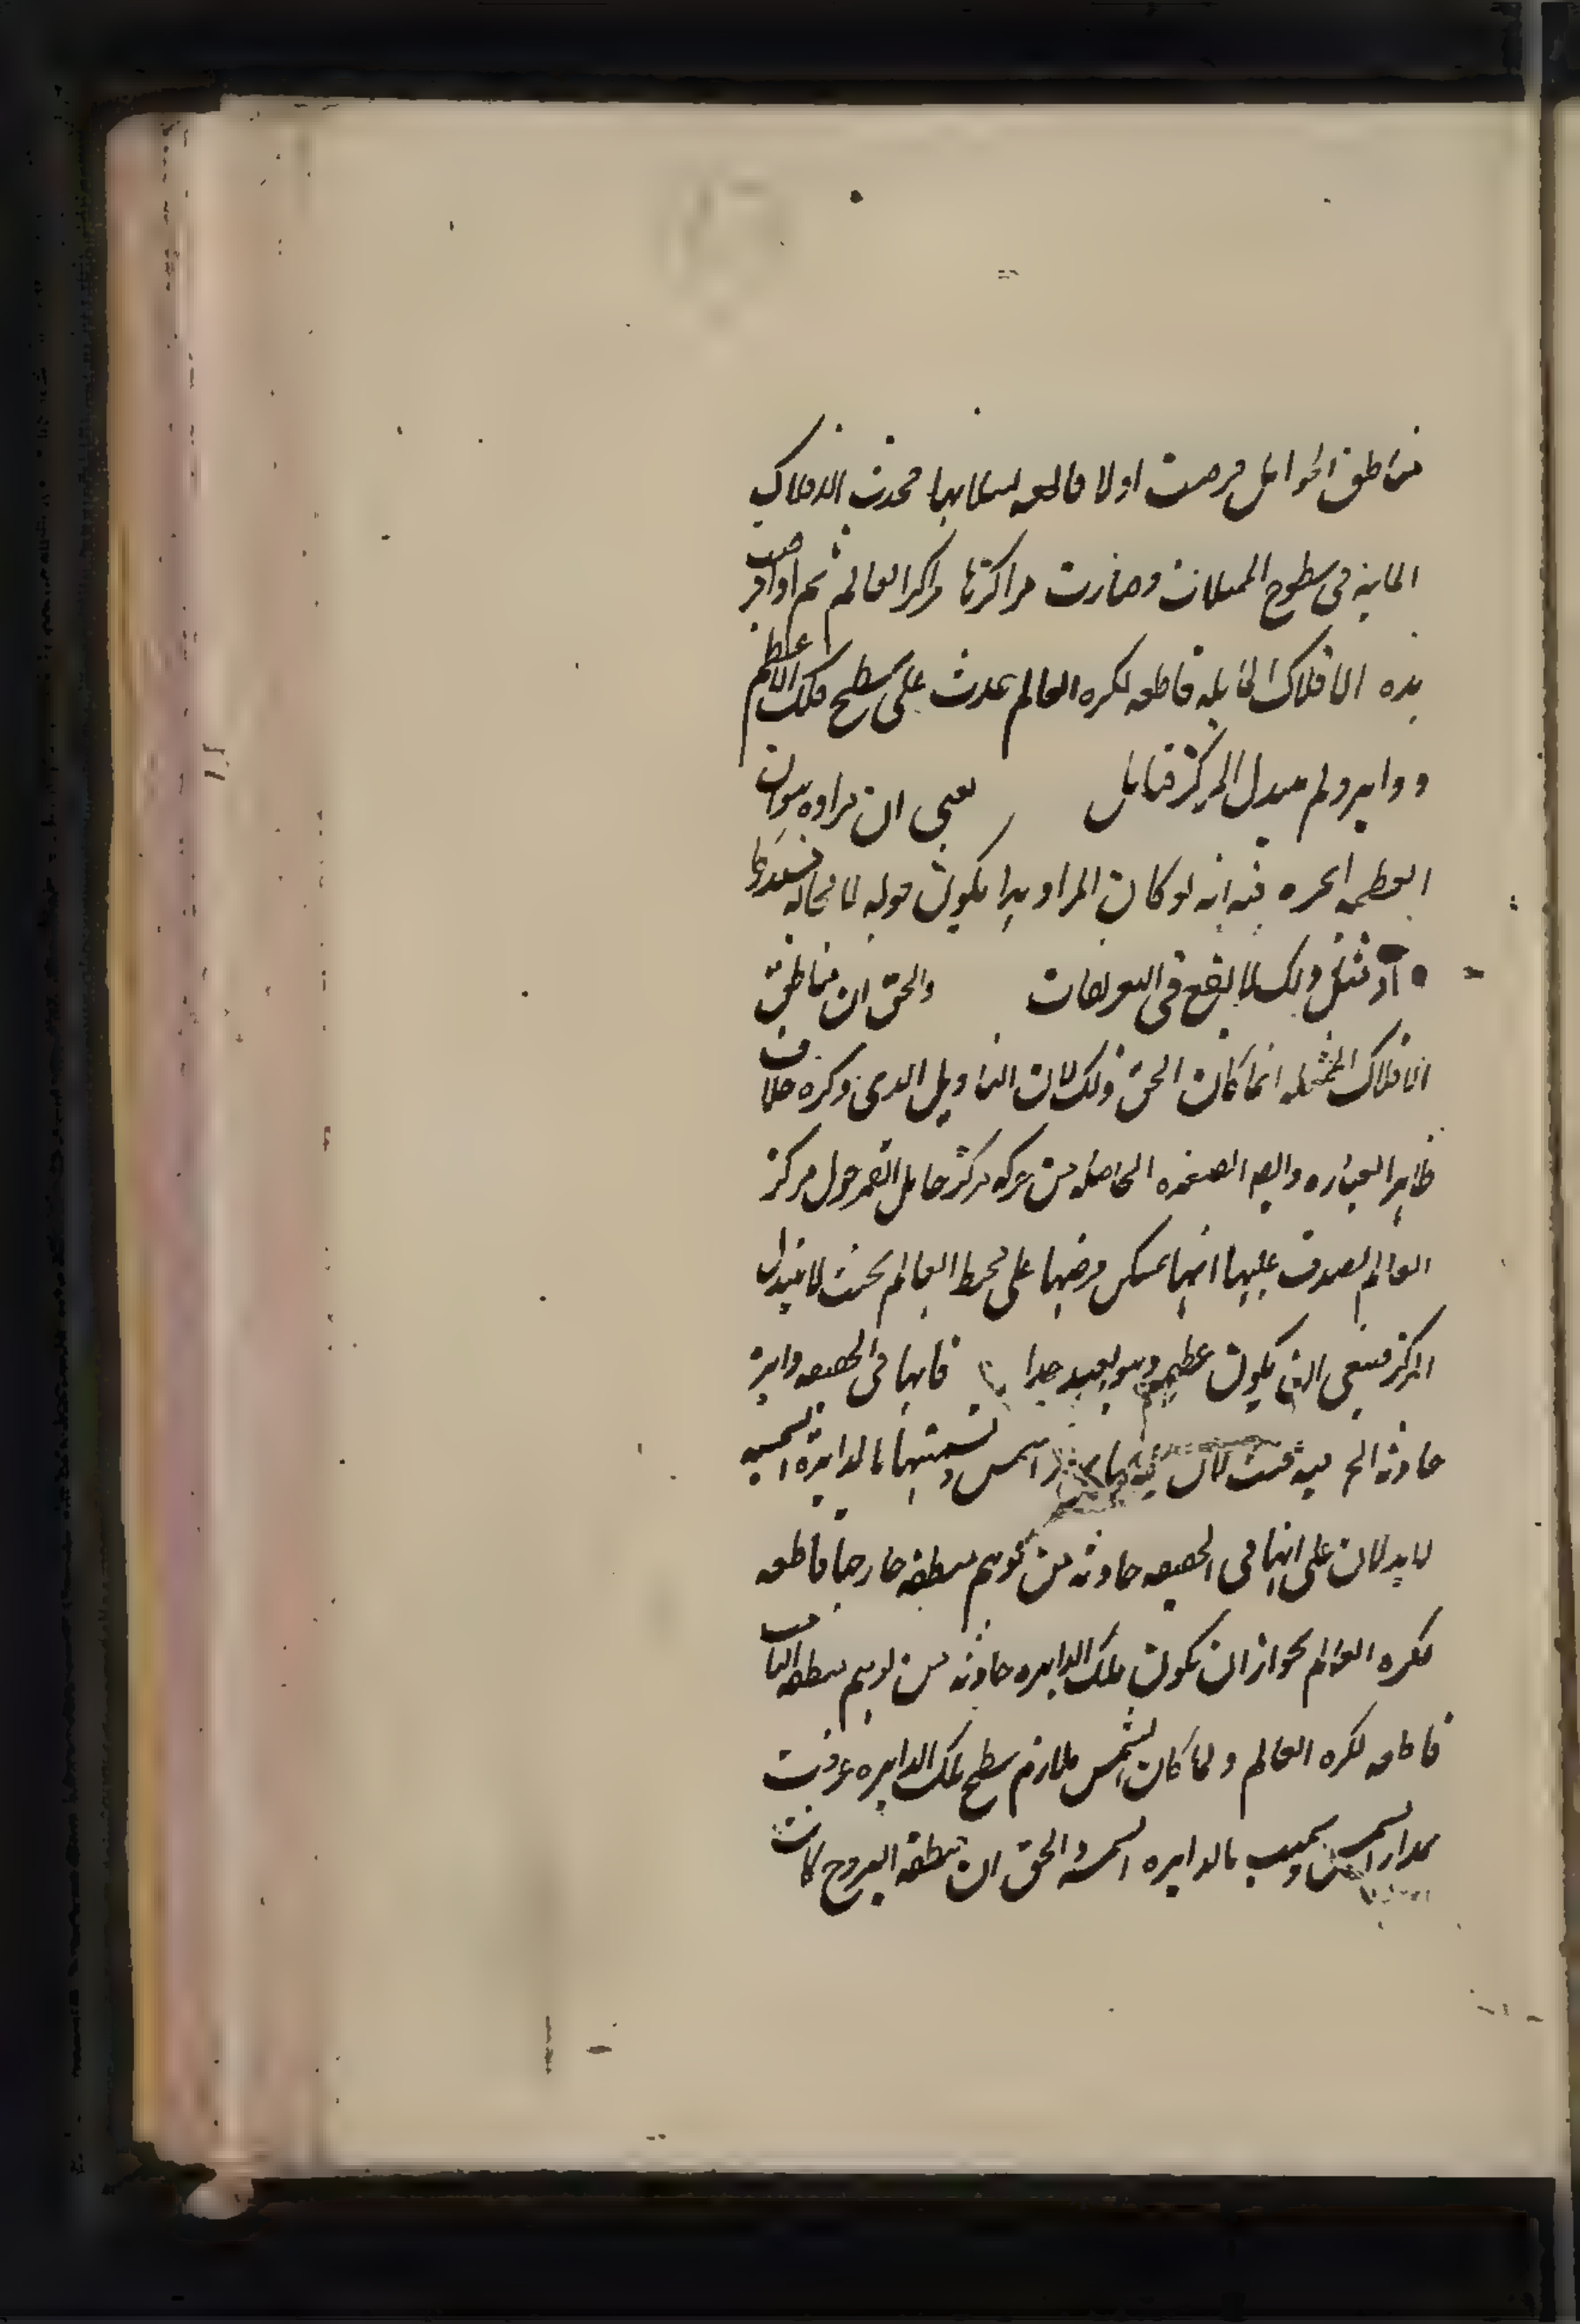 مناطق الحوامل فرضت اولا قاطعه لممثلاتها فحدثت الافلاك
المايله فى سطوح الممثلات وصارت مراكزها مراكز العالم ثم اذا فرضت
هذه الافلاك المايله قاطعه لكره العالم يحدث على سطح فلك الاعظم
دواير ولم يتبدل المركز فتامل يعنى ان مراده بتوازى
العظيمه الخ فيه انه لو كان المراد هذا يكون قوله لا محاله
اذ مثل ذلك لا يقع فى التعريفات والحق ان مناطق
الافلاك الممثله انما كان الحق ذلك لان التاويل الذى ذكره خلاف
ظاهر العباره وايضا الصغيره الحاصله من حركه مركز حامل القمر حول مركز
العالم يصدق عليها انها يمكن فرضها على محيط العالم بحيث لا يتبدل
المركز فينبغى ان يكون عظيمه وهو بعيد جدا فانها فى الحقيقه دايرة
حادثه الخ فيه بحث لان الشمس وتسميتها بالدايرة الشمسيه
لا يدلان على انها فى الحقيقه حادثه من توهم منطقه خارجها قاطعه
لكره العالم لجواز ان تكون تلك الدايره حادثه من توهم منطقه
قاطعه لكره العالم ولما كان الشمس ملازم سطح تلك الدايره عرفت
بمدار الشمس وسميت بالدايره الشمسيه والحق ان منطقه البروج كانت